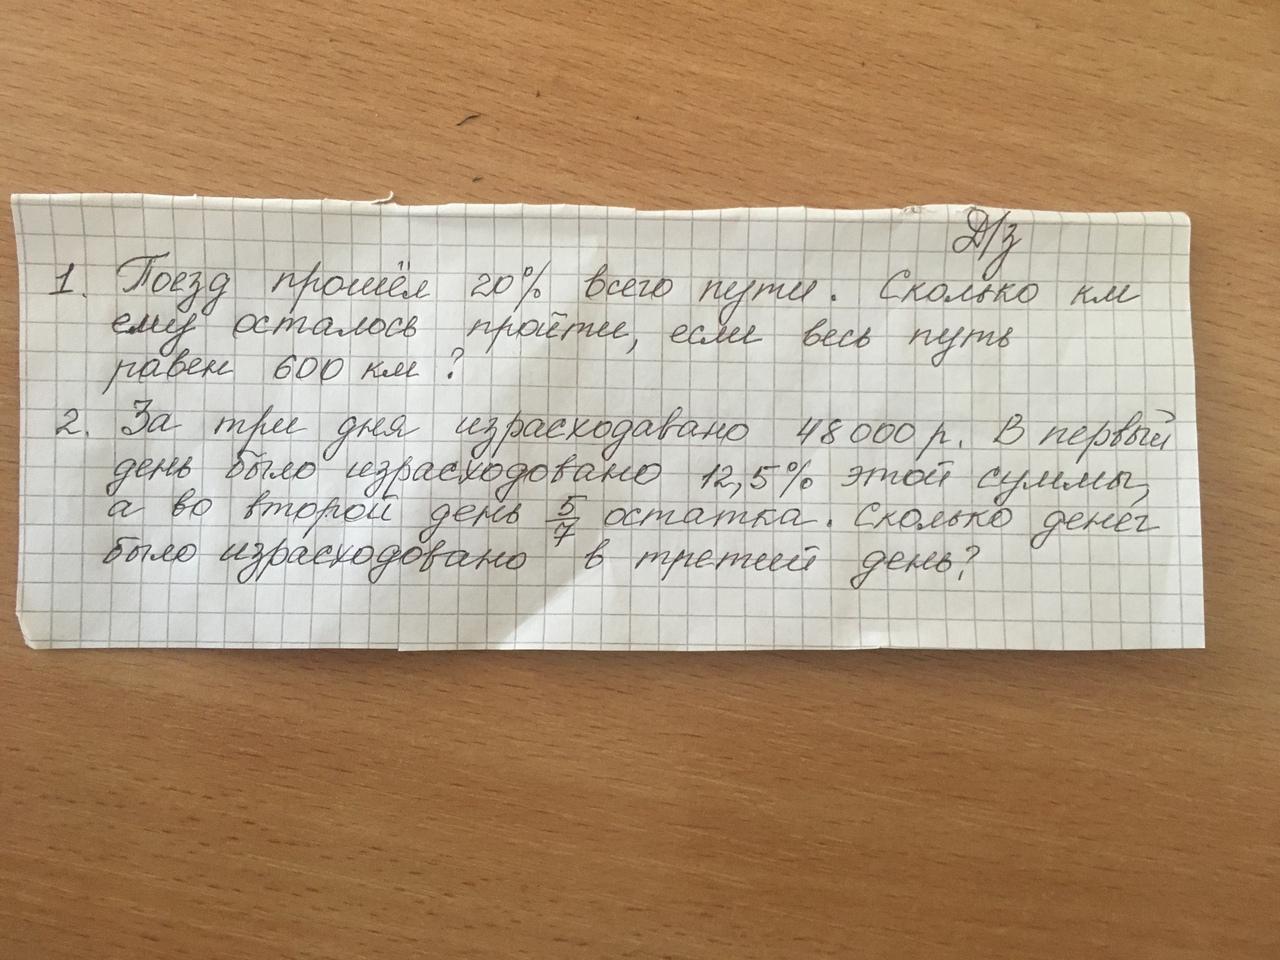 Д/з
1. Поезд прошёл 20% всего пути. Сколько км
ему осталось пройти, если весь путь
равен 600 км ?
2. За три дня израсходавано 48 000 р. В первый
день было израсходовано 12,5% этой суммы,
а во второй день 5/7 остатка. Сколько денег
было израсходовано в третий день?